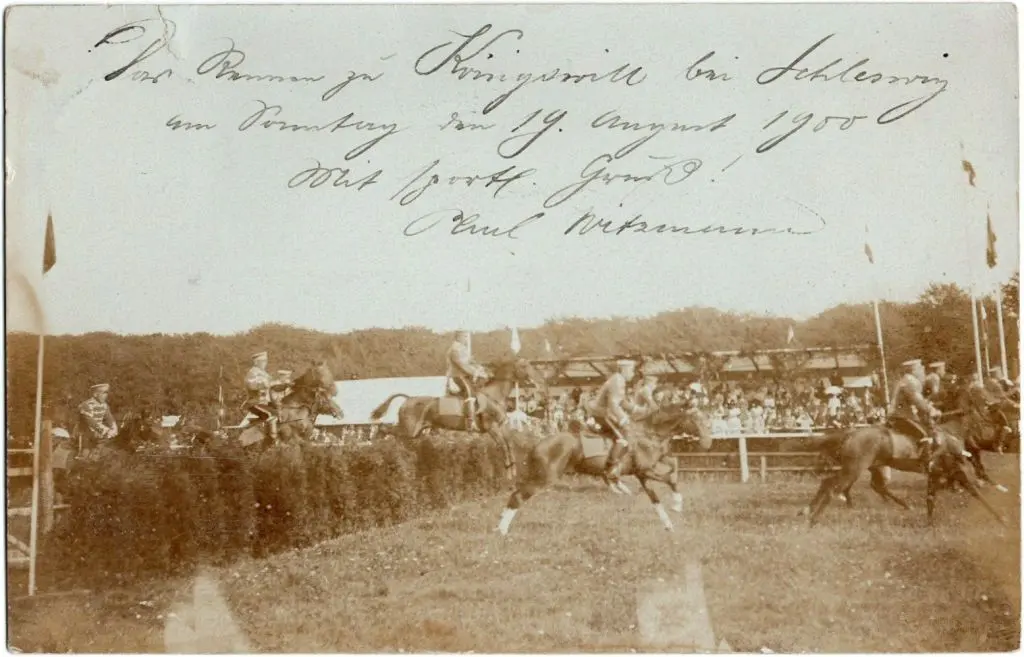 Das Rennen zu Königswill bei Schleswig
am Sonntag den 19. August 1900
Mit sportl. Gruß!
Paul Witzmann